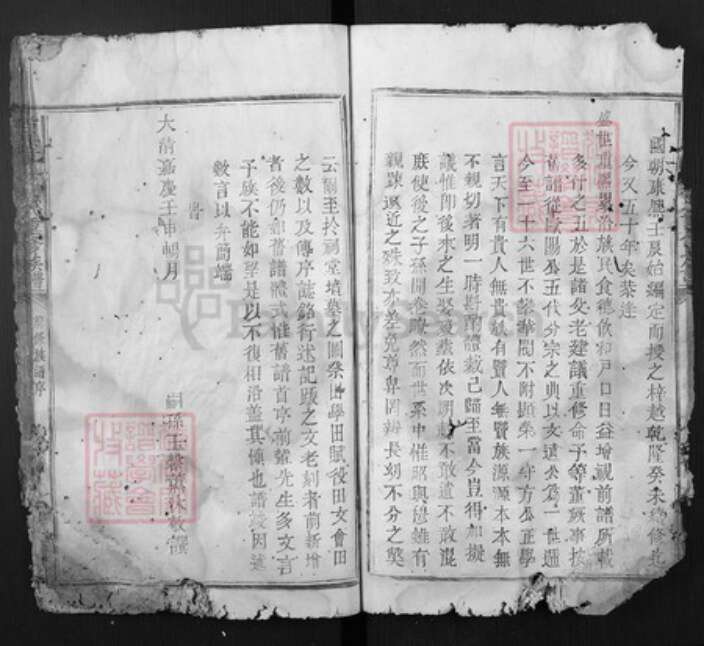 國朝康熙壬辰始編定而授之梓越乾隆癸未續修迄
今又五十年矣恭逢
盛世重熙累洽族民食德飲和戶口日益增視前譜所載
多什之五於是諸父老建議重修命予等董厥事按
舊譜從歐陽公五代分宗之典以文遠公為一世遞
今至二十六世不誇華閥不附顯榮一守方公正學
言天下有貴人無貴族有賢人無賢族源源本本無
不親切者明一時斟酌體裁已歸至當今豈得加擬
議惟即後來之生娶葬依次明載不敢遺不敢混
庶使後之子孫開卷瞭然而世系中惟昭與穆雖有
親疎遠近之殊致亦差免尊卑罔辨長幼不分之獘
云爾至於祠堂墳墓之圖祭田學田賦役田文會田
之數以及傳序誌銘行述記跋之文老刻者前新增
者後仍如舊譜款式惟舊譜首序前輩先生多文言
子孫不能如
是以不復相沿蓋其慎也譜竣因述
數言以弁簡端
旹
大清嘉慶壬申暢月
嗣孫